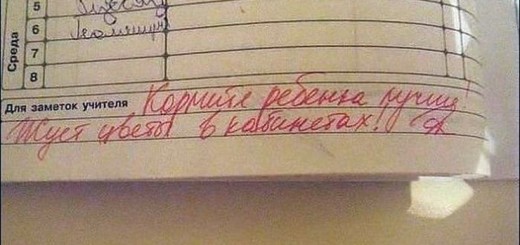 5
6 Геометрия
7
8
Среда
Для заметок учителя Кормите ребенка лучше!
Жует цветы в кабинетах!